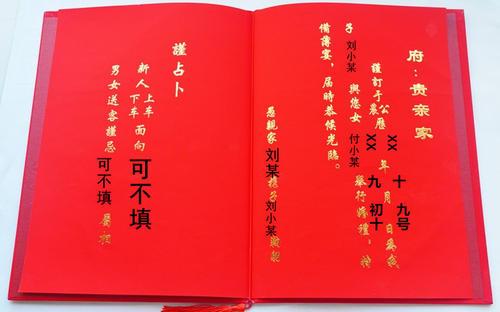 府：贵亲家
謹訂于公歷 XX 年 十 月 九号 日為我
農 XX 九 初十
子 刘小某 與您女 付小某 舉行婚禮，特
備薄宴，届時恭候光臨。
愚親家 刘某 携子 刘小某 敬邀
謹占卜
新人上车下车面向 可不填
男女送客謹忌 可不填 屬相